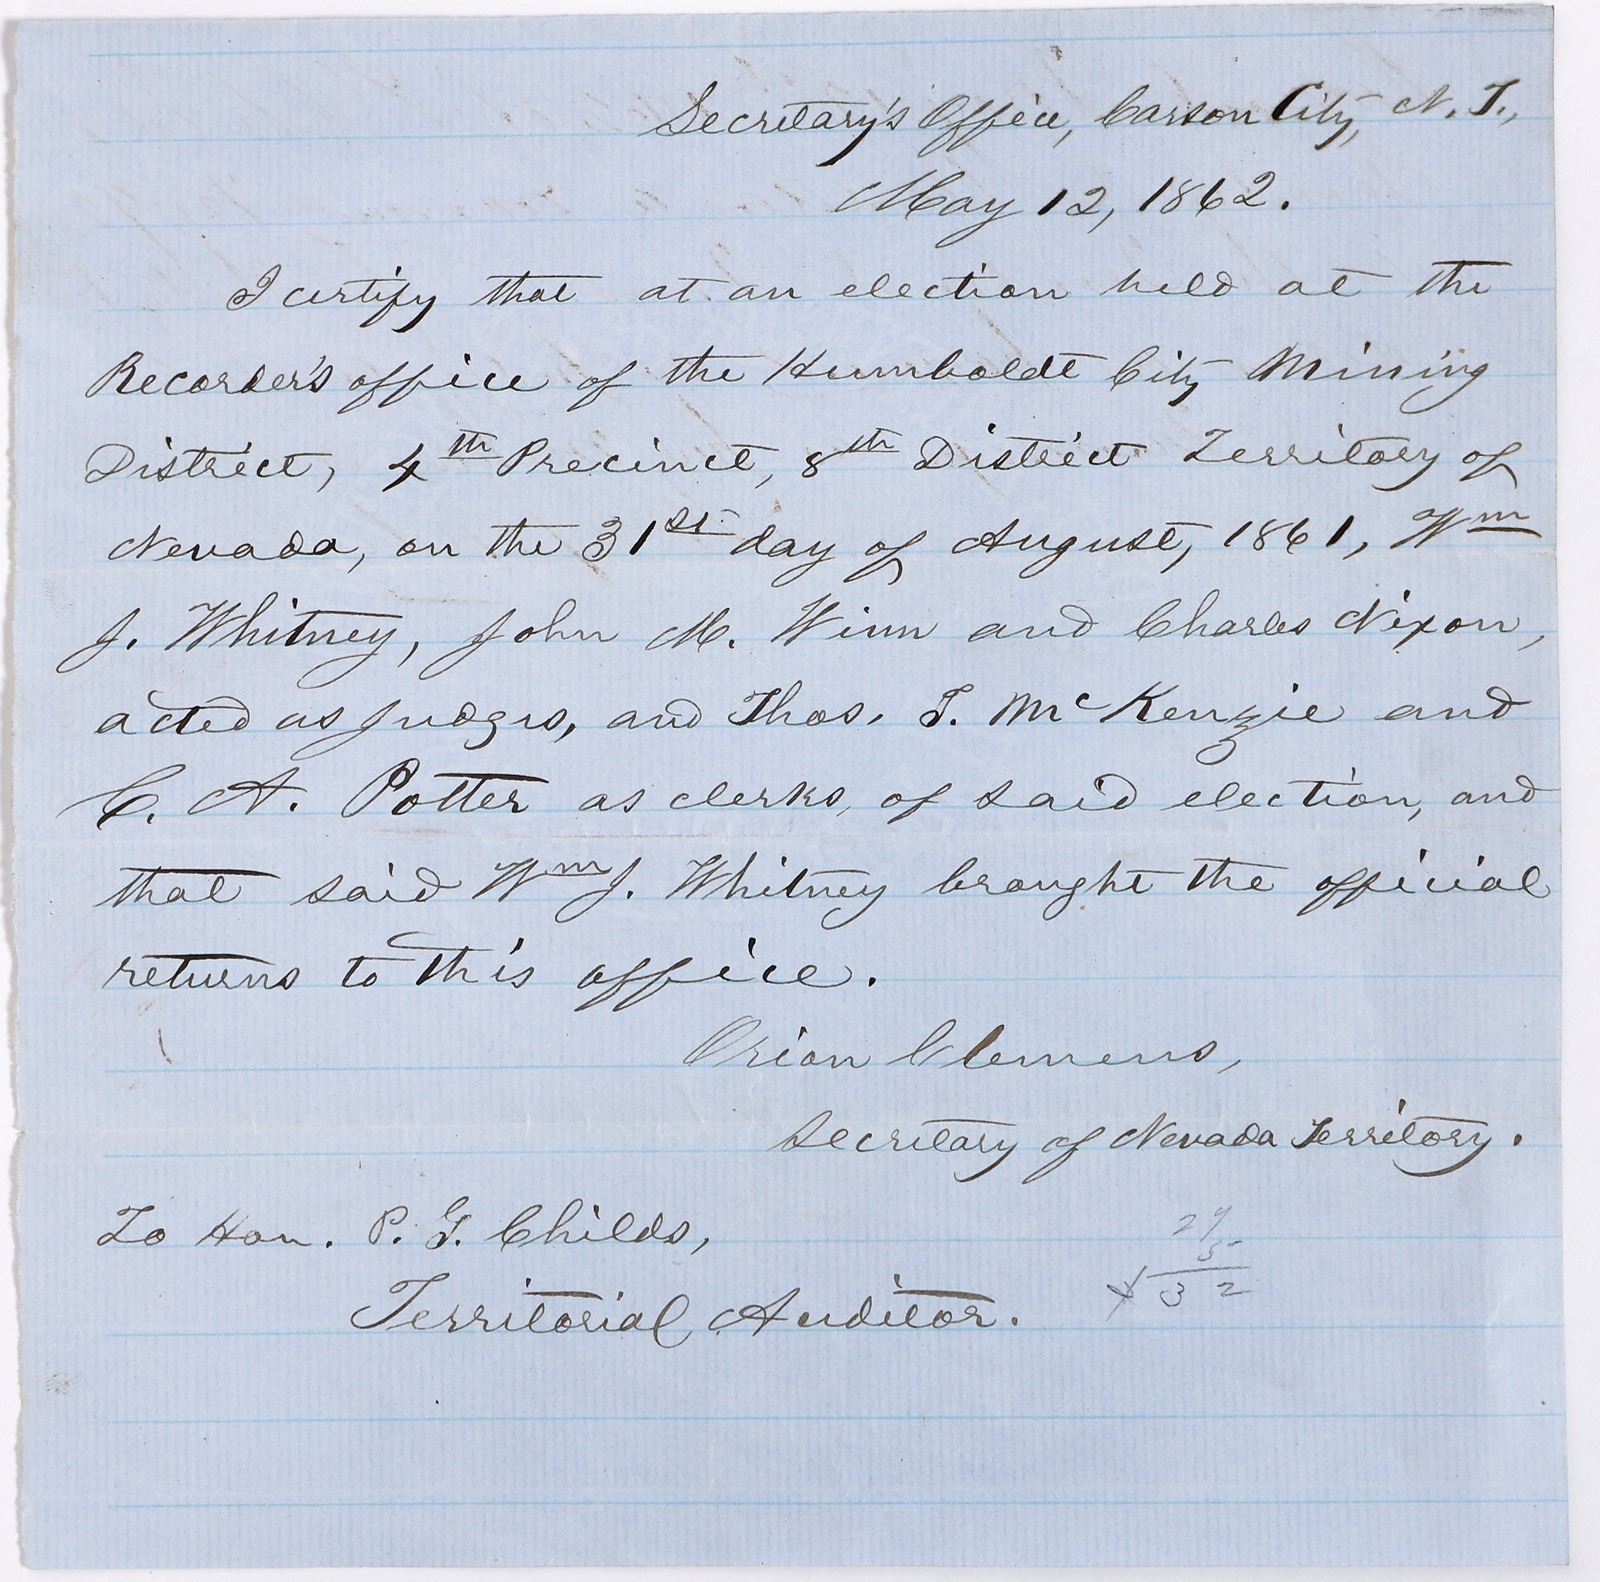 Secretary's Office, Carson City, N. T.,
May 12, 1862.
I certify that at an election held at the
Recorder's office of the Humboldt City Mining
District, 4th Precinct, 8th District Territory of
Nevada, on the 31st day of August, 1861, Wm
J. Whitney, John M. Winn and Charles Nixon,
acted as Judges, and Thos. T. McKenzie and
C. A. Potter as clerks, of said election, and
that said Wm J. Whitney brought the official
returns to this office.
Orion Clemens,
Secretary of Nevada Territory.
To Hon. P. G. Childs,
Territorial Auditor.
5
32